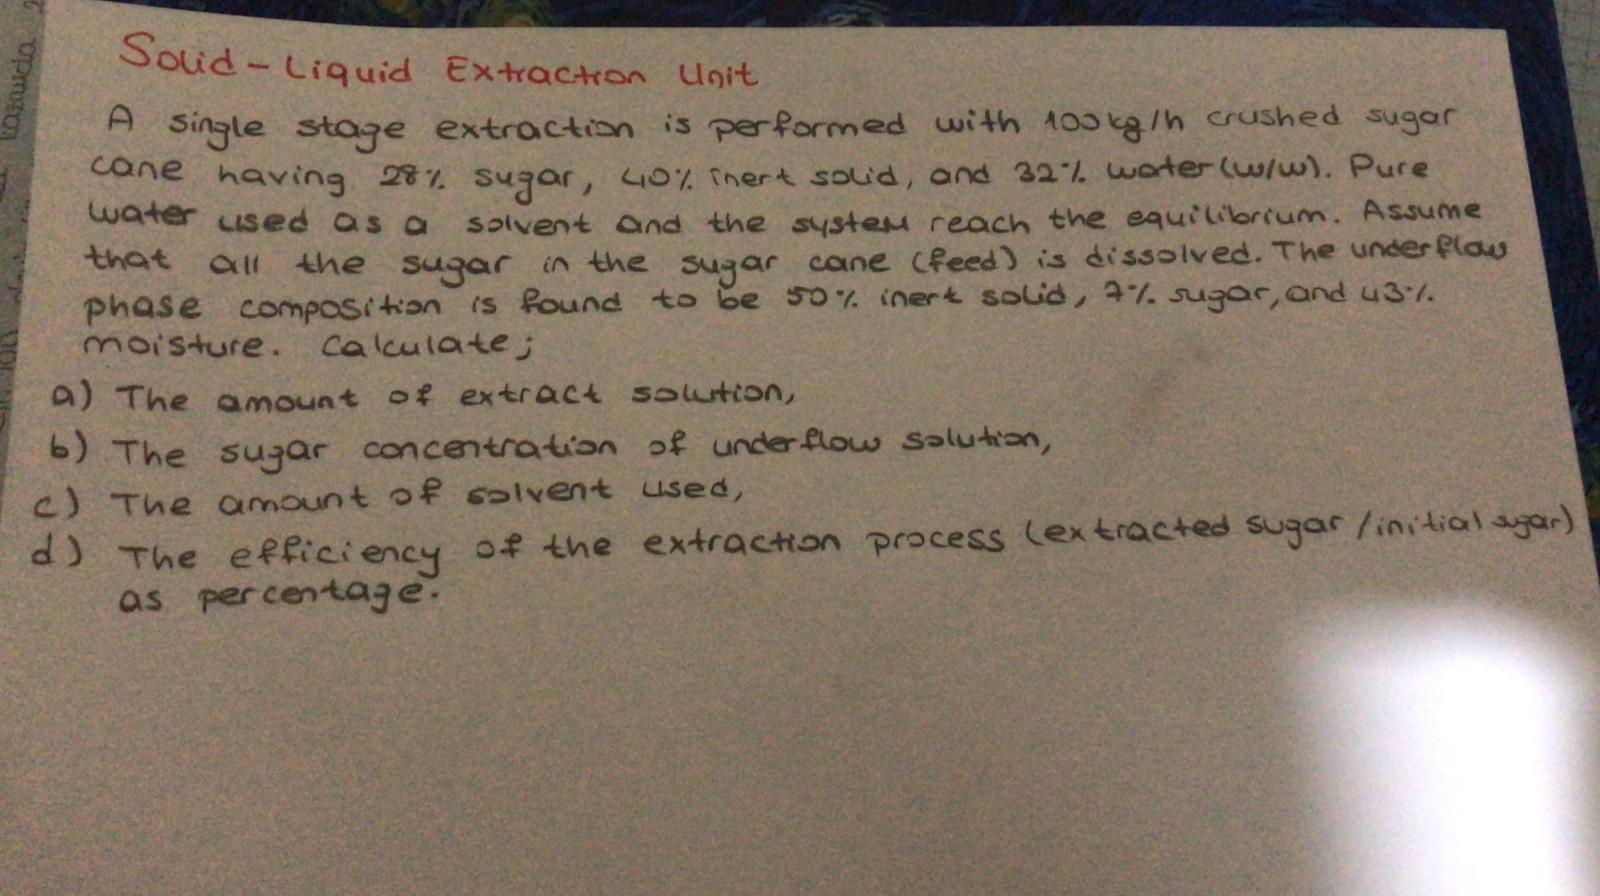 Solid-Liquid Extraction Unit
A single stage extraction is performed with 100kg/h crushed sugar
cane having 28% sugar, 40% inert solid, and 32% water (w/w). Pure
water used as a solvent and the system reach the equilibrium. Assume
that all the sugar in the sugar cane (feed) is dissolved. The underflow
phase composition is found to be 50% inert solid, 7% sugar, and 43%
moisture. Calculate;
a) The amount of extract solution,
b) The sugar concentration of underflow solution,
c) The amount of solvent used,
d) The efficiency of the extraction process (extracted sugar/initial sugar)
as percentage.